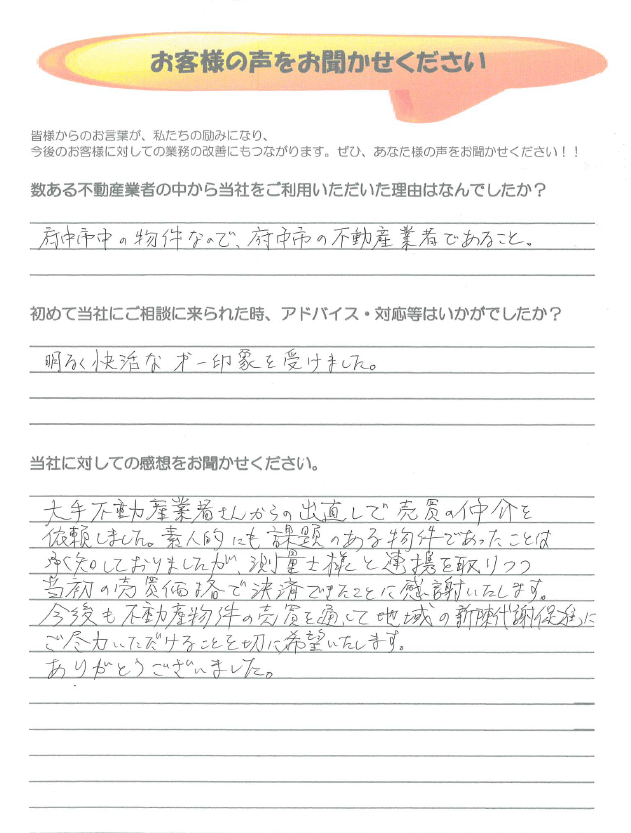 お客様の声をお聞かせください
皆様からのお言葉が、私たちの励みになり、
今後のお客様に対しての業務の改善にもつながります。ぜひ、あなた様の声をお聞かせください！！
数ある不動産業者の中から当社をご利用いただいた理由はなんでしたか？
府中市中の物件なので、府中市の不動産業者であること。
初めて当社にご相談に来られた時、アドバイス・対応等はいかがでしたか？
明るく快活な才一印象を受けました。
当社に対しての感想をお聞かせください。
大手不動産業者さんからの出直しで売買の仲介を
依頼しました。素人的にも課題のある物件であったことは
承知しておりましたが、測量士様と連携を取りつつ
当初の売買価格で決済できたことに感謝いたします。
今後も不動産物件の売買を通じて地域の新陳代謝促進に
ご尽力いただけることを切に希望いたします。
ありがとうございました。